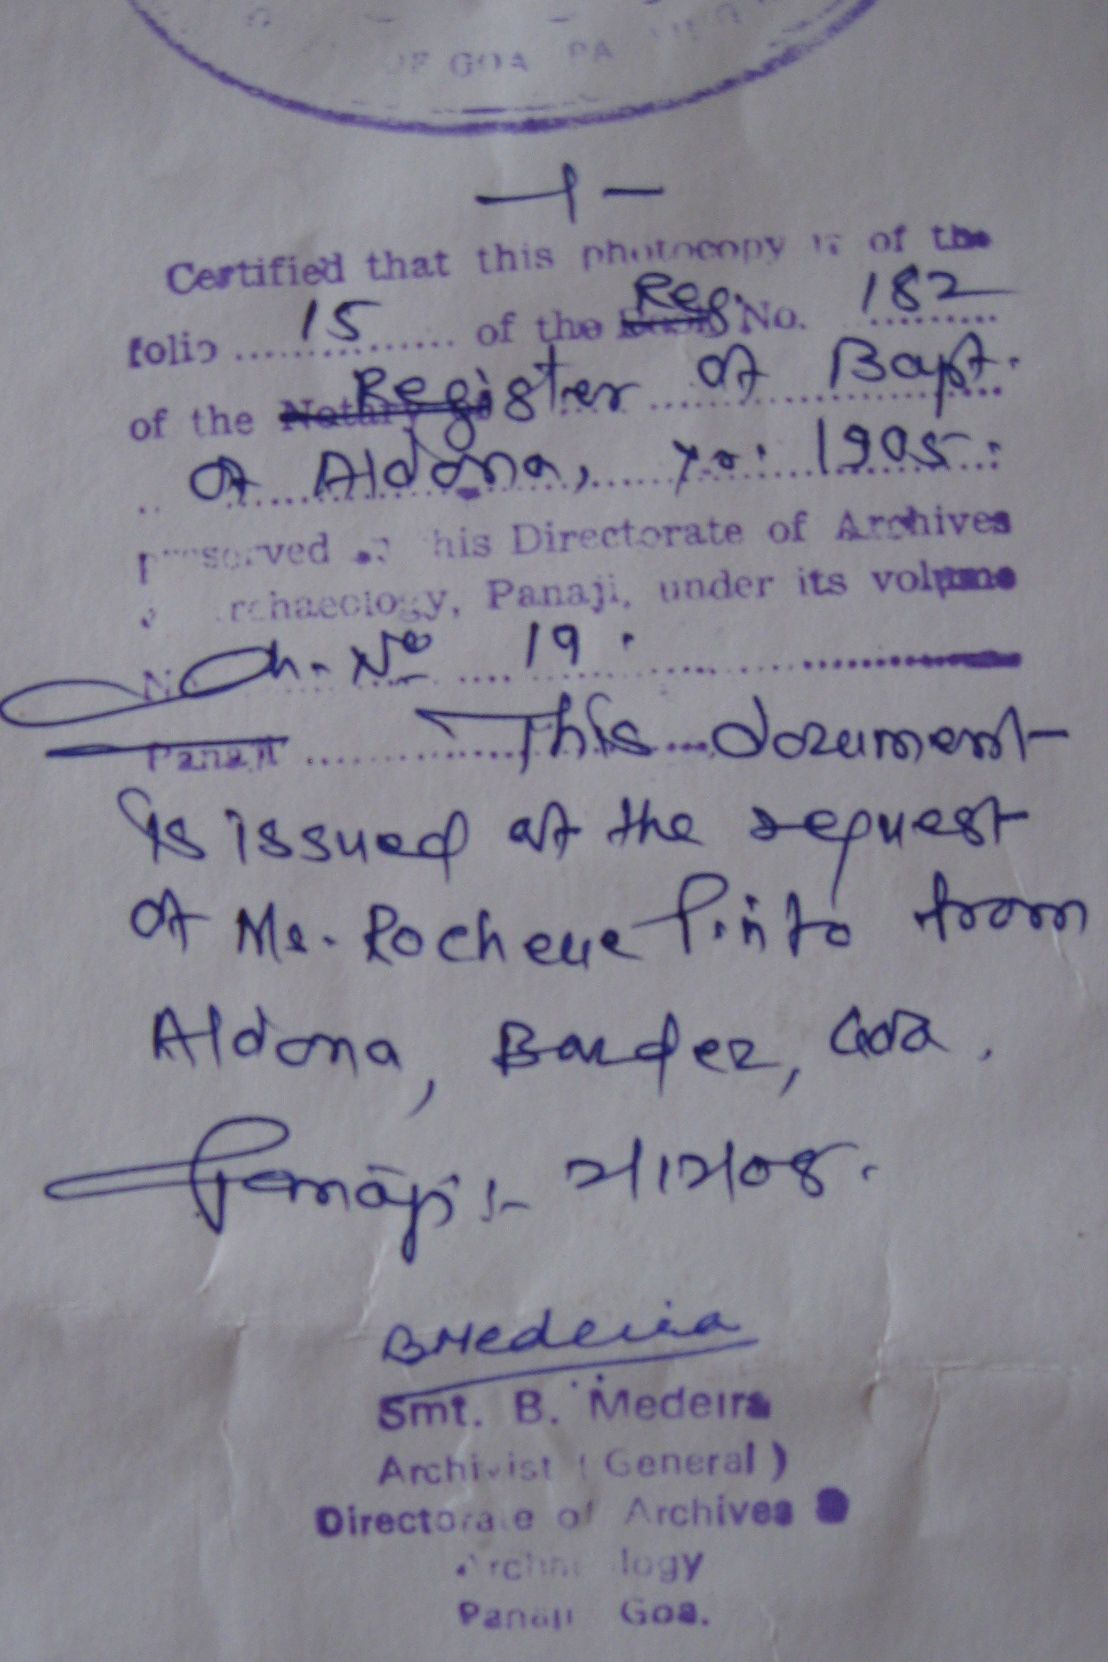 OF GOA PA
— 1 —
Certified that this photocopy is of the
folio ..... 15 ..... of the Reg. No. 182
of the Register of Bapt.
of Aldona, yr. 1905.
preserved his Directorate of Archives
rchaeology, Panaji, under its volume
Ch. No 19.
Panaji ..... This document
is issued at the request
of Mr. Pinto from
Aldona, Bardez, Goa.
Panaji :- 2/12/08.
BMedeira
Smt. B. Medeira
Archivist (General)
Directorate of Archives &
Archaeology
Panaji Goa.